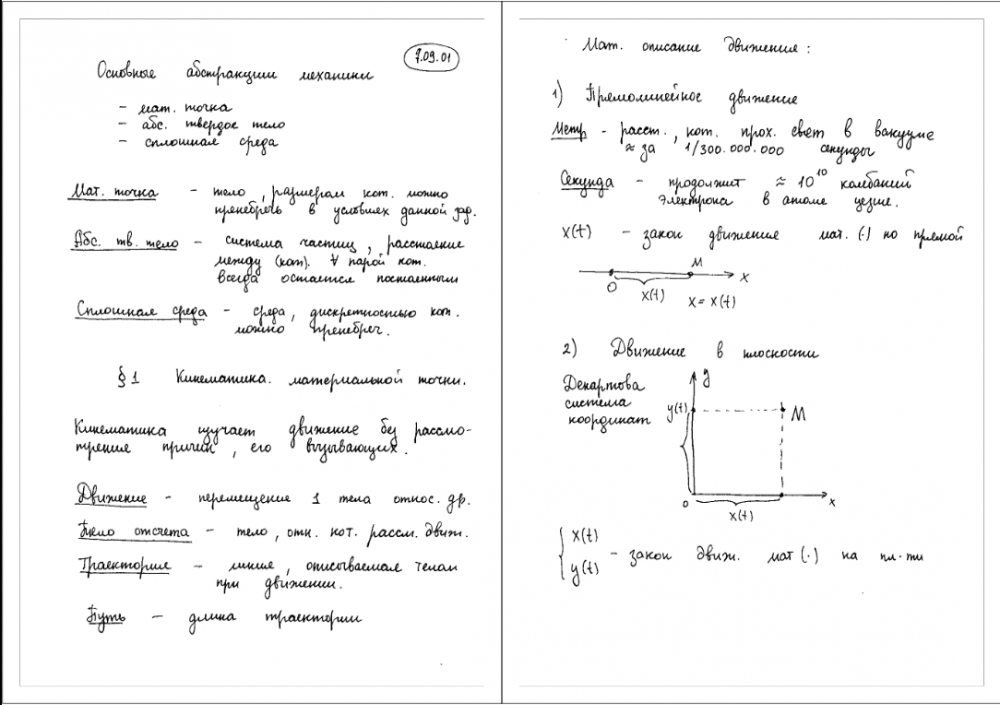 7.09.01
Основные абстракции механики
- мат. точка
- абс. твердое тело
- сплошная среда
Мат. точка - тело, размерам кот. можно
пренебречь в условиях данной зад.
Абс. тв. тело - система частиц, расстояние
между (кот). ∀ парой кот.
всегда остается постоянным
Сплошная среда - среда, дискретностью кот.
можно пренебреч.
§ 1 Кинематика. материальной точки.
Кинематика изучает движение без рассмо-
трения причин, его вызывающих.
Движение - перемещение 1 тела относ. др.
Тело отсчета - тело, отн. кот. рассм. движ.
Траектория - линия, описываемая телом
при движении.
Путь - длина траектории
Мат. описание движения:
1) Прямолинейное движение
Метр - расст., кот. прох. свет в вакууме
≈ за 1/300.000.000 секунды
Секунда - продолжит ≈ 10¹⁰ колебаний
электрона в атоме цезия.
x(t) - закон движения мат. (·) по прямой
M
O x(t) x
x = x(t)
2) Движение в плоскости
Декартова
система
координат
y
y(t) M
0 x
x(t)
{ x(t)
y(t) - закон движ. мат (·) на пл-ти